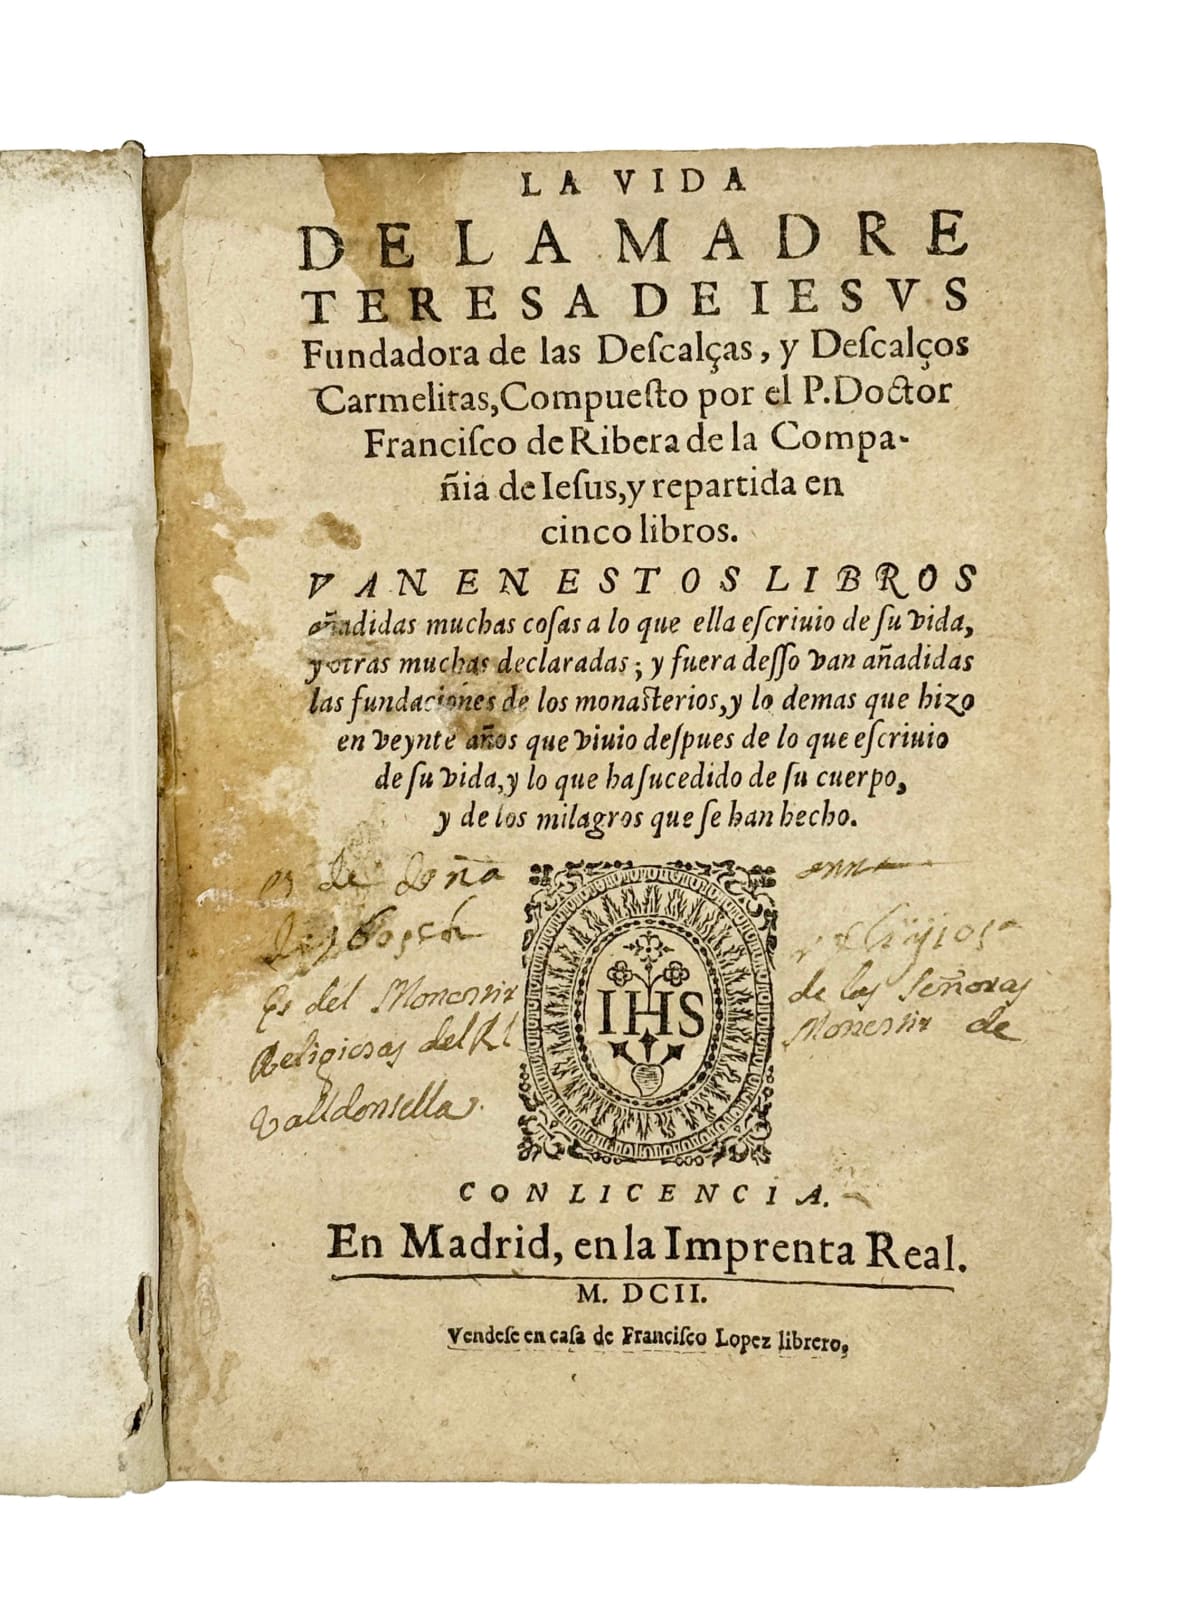 LA VIDA
DE LA MADRE
TERESA DE IESVS
Fundadora de las Deſcalças, y Deſcalços
Carmelitas, Compueſto por el P. Doctor
Franciſco de Ribera de la Compa-
ñia de Ieſus, y repartida en
cinco libros.
VAN EN ESTOS LIBROS
añadidas muchas coſas a lo que ella eſcriuio de ſu vida,
y otras muchas declaradas; y fuera deſſo van añadidas
las fundaciones de los monaſterios, y lo demas que hizo
en veynte años que viuio deſpues de lo que eſcriuio
de ſu vida, y lo que ha ſucedido de ſu cuerpo,
y de los milagros que ſe han hecho.
es de doña anna
religiosa
Es del Monestir de las Señoras
Religiosas del Rl Monestir de
Valldonsella.
IHS
CON LICENCIA.
En Madrid, en la Imprenta Real.
M. DCII.
Vendeſe en caſa de Franciſco Lopez librero,